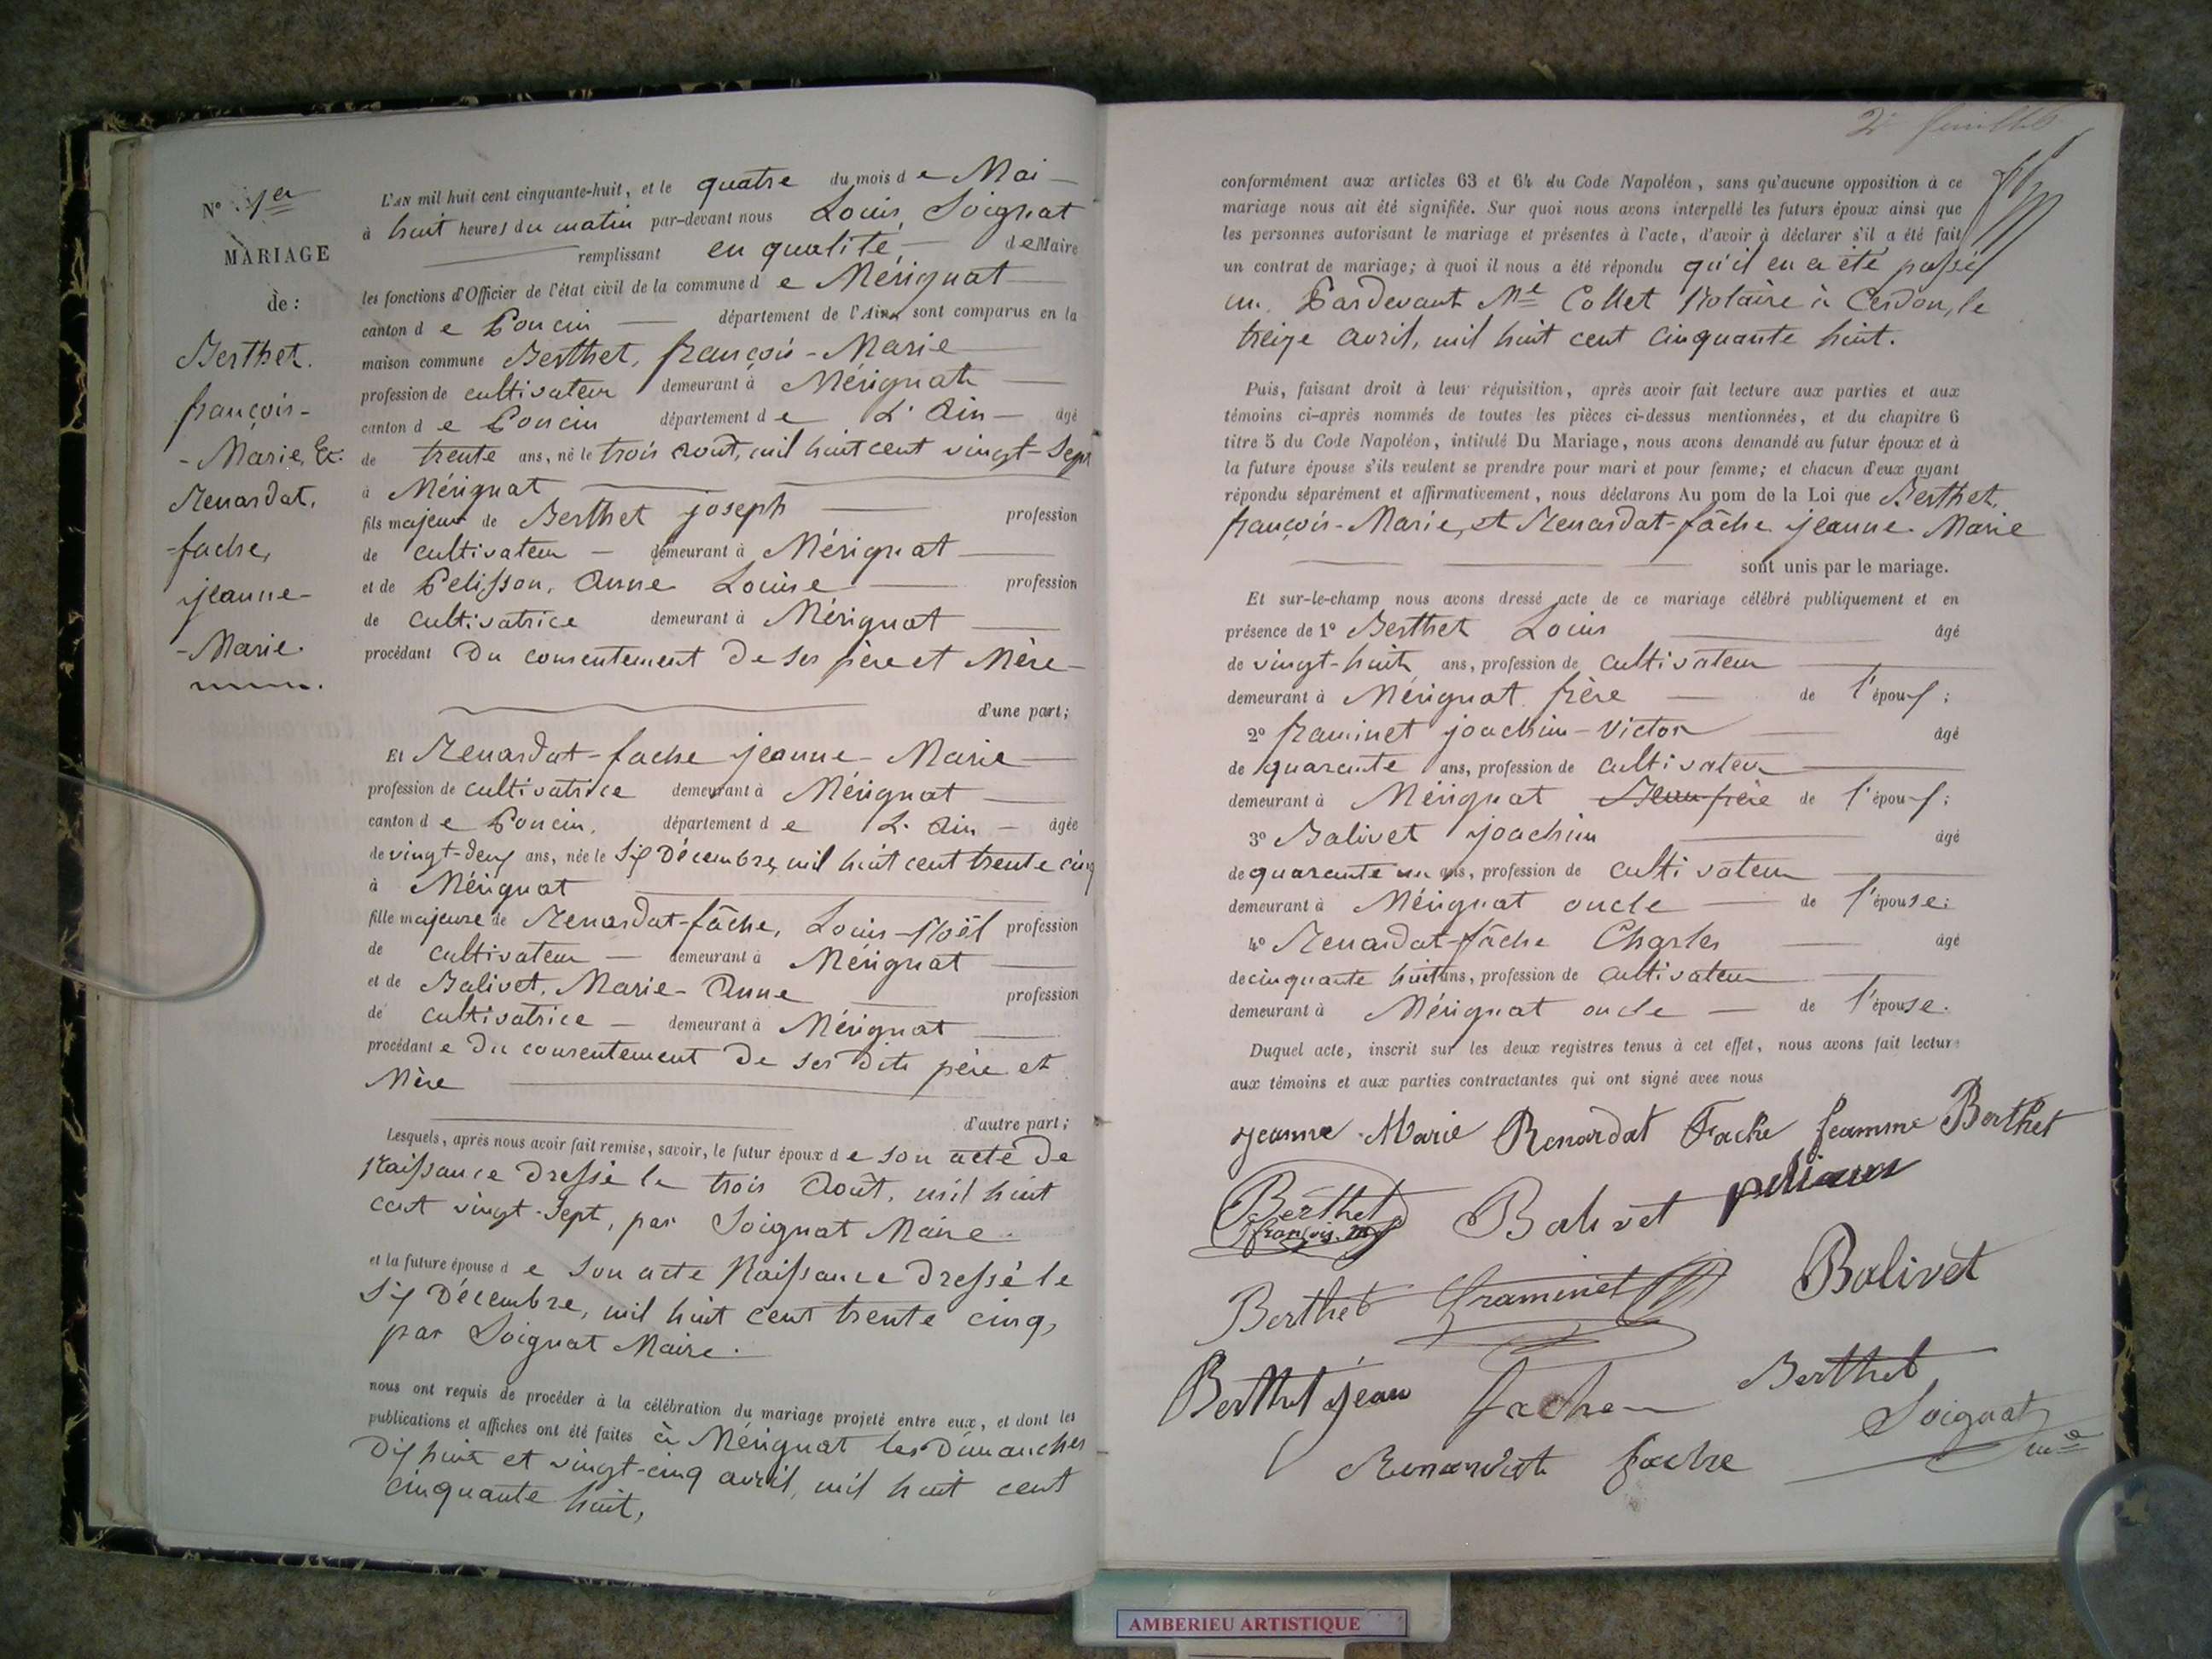 N° 1er
MARIAGE
de :
Berthet.
françois-
-Marie, &
Renardat,
-fache,
jeanne-
-Marie.
L'AN mil huit cent cinquante-huit, et le quatre du mois de Mai
à huit heures du matin par-devant nous Louis, Soignat
remplissant en qualité de Maire
les fonctions d'Officier de l'état civil de la commune de Mérignat
canton de Poncin département de l'Ain, sont comparus en la
maison commune Berthet, françois-Marie
profession de cultivateur demeurant à Mérignat
canton de Poncin département de L'Ain âgé
de trente ans, né le trois août, mil huit cent vingt-sept
à Mérignat
fils majeur de Berthet joseph profession
de cultivateur demeurant à Mérignat
et de Pelisson, Anne Louise profession
de cultivatrice demeurant à Mérignat
procédant du consentement de ses père et Mère
d'une part;
Et Renardat-fache jeanne-Marie
profession de cultivatrice demeurant à Mérignat
canton de Poncin, département de L'Ain âgée
de vingt-deux ans, née le Six Décembre, mil huit cent trente cinq
à Mérignat
fille majeure de Renardat-fâche, Louis-Noël profession
de cultivateur demeurant à Mérignat
et de Balivet, Marie-Anne profession
de cultivatrice demeurant à Mérignat
procédante du consentement de ses dits père et
Mère
d'autre part;
Lesquels, après nous avoir fait remise, savoir, le futur époux de son acte de
Naissance dressé le trois Août, mil huit
cent vingt-sept, par Soignat Maire.
et la future épouse de son acte Naissance dressé le
Six Décembre, mil huit cent trente cinq,
par Soignat Maire.
nous ont requis de procéder à la célébration du mariage projeté entre eux, et dont les
publications et affiches ont été faites à Mérignat les Dimanches
dix huit et vingt-cinq avril, mil huit cent
cinquante huit,
2e feuillet
conformément aux articles 63 et 64 du Code Napoléon, sans qu'aucune opposition à ce
mariage nous ait été signifiée. Sur quoi nous avons interpellé les futurs époux ainsi que
les personnes autorisant le mariage et présentes à l'acte, d'avoir à déclarer s'il a été fait
un contrat de mariage; à quoi il nous a été répondu qu'il en a été passé
un. Pardevant Me Collet Notaire à Cerdon, le
treize avril, mil huit cent cinquante huit.
Puis, faisant droit à leur réquisition, après avoir fait lecture aux parties et aux
témoins ci-après nommés de toutes les pièces ci-dessus mentionnées, et du chapitre 6
titre 5 du Code Napoléon, intitulé Du Mariage, nous avons demandé au futur époux et à
la future épouse s'ils veulent se prendre pour mari et pour femme; et chacun d'eux ayant
répondu séparément et affirmativement, nous déclarons Au nom de la Loi que Berthet,
françois-Marie, et Renardat-fâche jeanne-Marie
sont unis par le mariage.
Et sur-le-champ nous avons dressé acte de ce mariage célébré publiquement et en
présence de 1° Berthet Louis âgé
de vingt-huit ans, profession de cultivateur
demeurant à Mérignat frère de l'époux;
2° framinet joachim-Victor âgé
de quarante ans, profession de cultivateur
demeurant à Mérignat Beau-père de l'époux;
3° Balivet joachim âgé
de quarante un ans, profession de cultivateur
demeurant à Mérignat oncle de l'épouse;
4° Renardat-fâche Charles âgé
de cinquante huit ans, profession de cultivateur
demeurant à Mérignat oncle de l'épouse.
Duquel acte, inscrit sur les deux registres tenus à cet effet, nous avons fait lecture
aux témoins et aux parties contractantes qui ont signé avec nous
jeanne Marie Renardat Fache feamme Berthet
Berthet Balivet
françois. m
Berthet framinet Balivet
Berthet jean fache Berthet
Renardat fache Soignat
AMBERIEU ARTISTIQUE